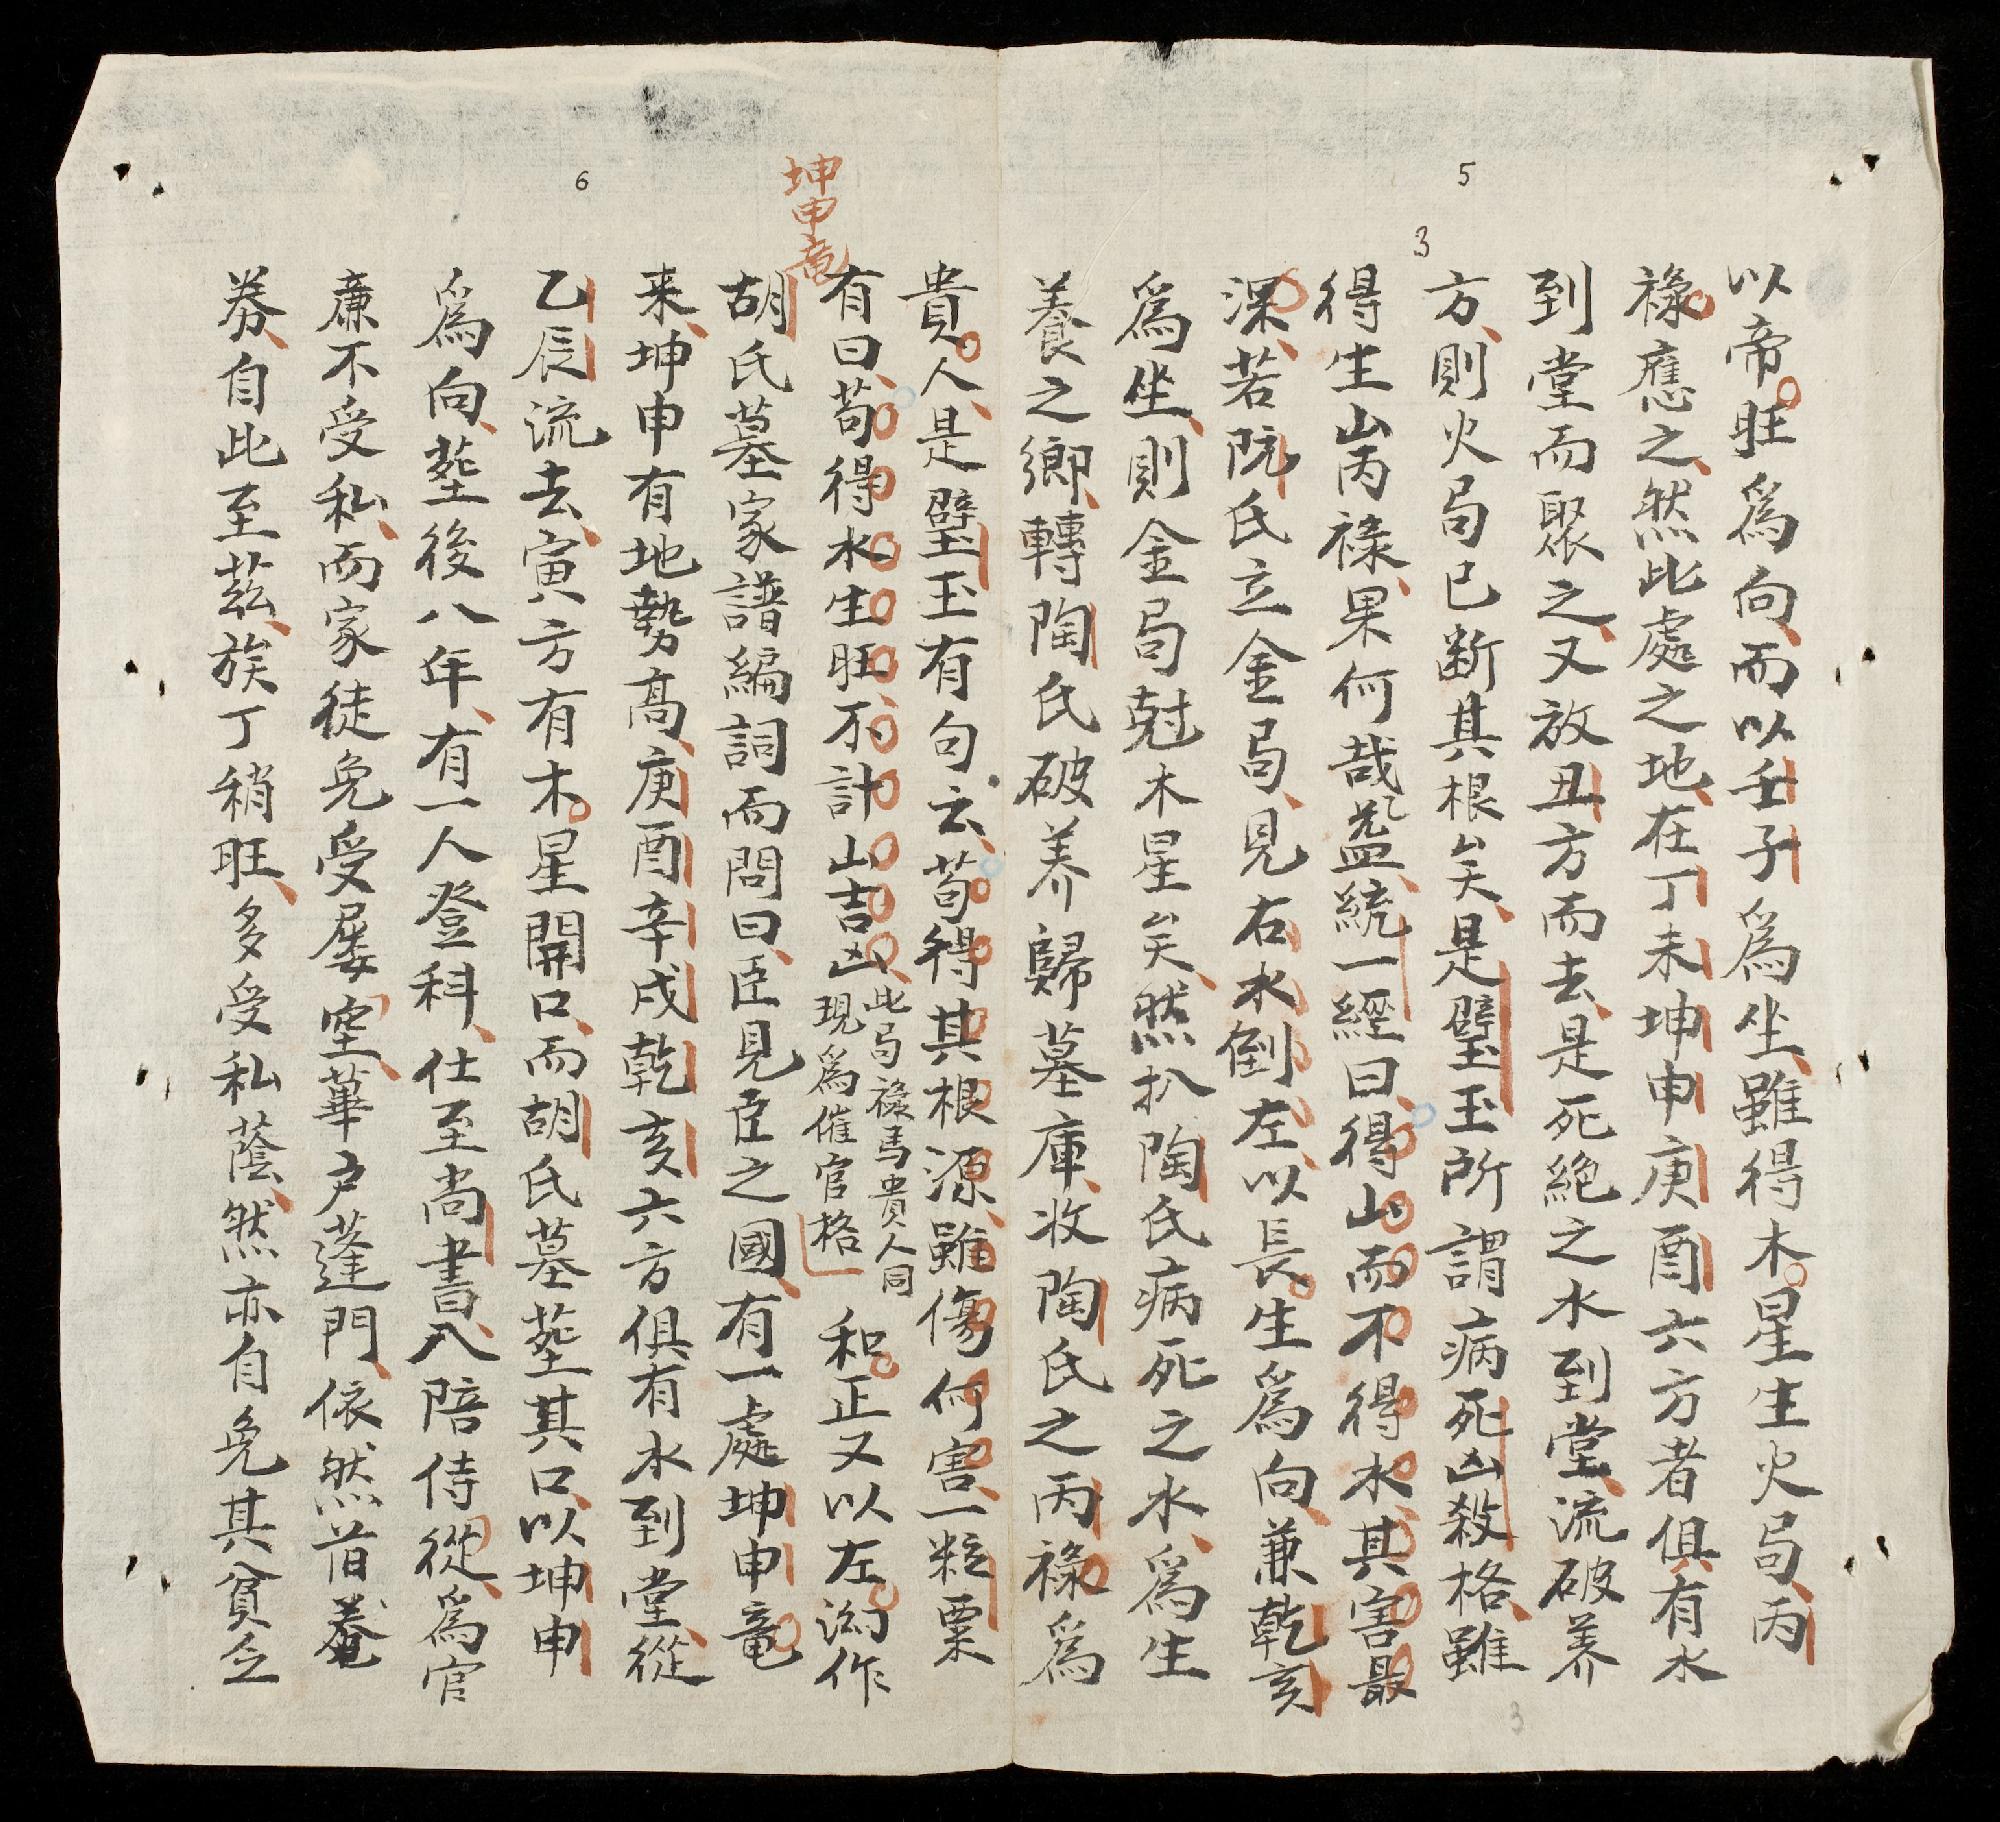 5
3
以帝旺爲向而以壬子爲坐雖得木星生火局丙
祿應之然此處之地在丁未坤申庚酉六方者俱有水
到堂而聚之又放丑方而去是死絶之水到堂流破养
方則火局已断其根矣是璧玉所謂病死凶殺格雖
得生山丙祿果何哉盖統一經曰得山而不得水其害最
深若阮氏立金局見右水倒左以長生爲向兼乾亥
爲坐則金局尅木星矣然扒陶氏病死之水爲生
養之鄉轉陶氏破养歸墓庫收陶氏之丙祿爲
3
6
貴人是璧玉有句云苟得其根源雖傷何害一粒粟
有曰苟得水生旺不計山吉凶此局祿馬貴人同現爲催官格 和正又以左泑作
坤申竜
胡氏墓家譜編詞而問曰臣見臣之國有一處坤申竜
来坤申有地勢高庚酉辛戌乾亥六方俱有水到堂從
乙辰流去寅方有木星開口而胡氏墓塟其口以坤申
爲向塟後八年有一人登科仕至尚書入陪侍從爲官
廉不受私而家徒免受屡空蓽户蓬門依然昔菴
券自此至茲族丁稍旺多受私蔭然亦自免其貧乏